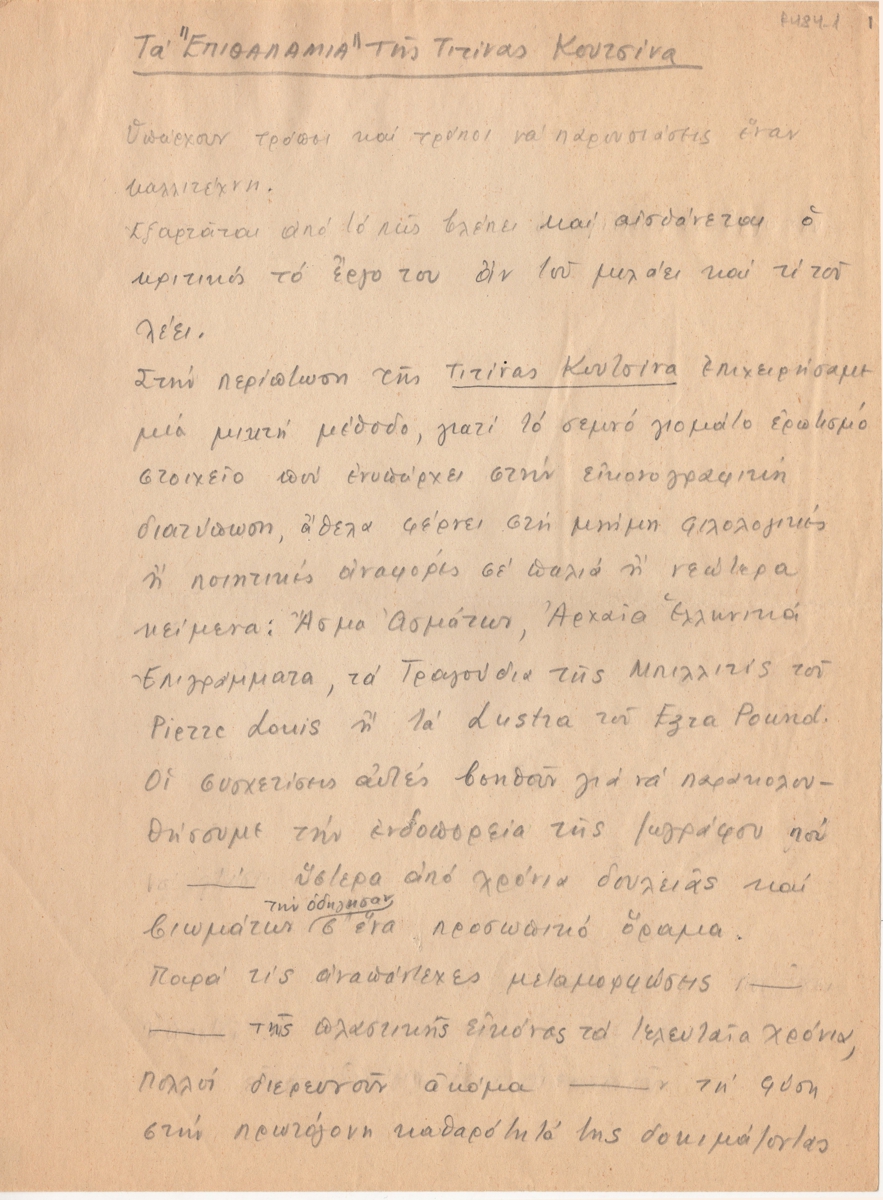 1
Τά "ΕΠΙΘΑΛΑΜΙΑ" τῆς Τιτίνας Κουτσίνα
Ὑπάρχουν τρόποι καί τρόποι νά παρουσιάσεις ἕναν
καλλιτέχνη.
Ἐξαρτᾶται ἀπό τό πῶς βλέπει καί αἰσθάνεται ὁ
κριτικός τό ἔργο του ἄν τοῦ μιλάει καί τί τοῦ
λέει.
Στήν περίπτωση τῆς Τιτίνας Κουτσίνα ἐπιχειρήσαμε
μιά μικτή μέθοδο, γιατί τό σεμνό γιομάτο ἐρωτισμό
στοιχεῖο πού ἐνυπάρχει στήν εἰκονογραφική
διατύπωση, ἄθελα φέρνει στή μνήμη φιλολογικές
ἤ ποιητικές ἀναφορές σέ παλιά ἤ νεώτερα
κείμενα: Ἄσμα Ἀσμάτων, Ἀρχαῖα Ἑλληνικά
Ἐπιγράμματα, τά Τραγούδια τῆς Μπιλλιτίς τοῦ
Pierre Louis ἤ τά Lustra τοῦ Ezra Pound.
Οἱ συσχετίσεις αὐτές βοηθοῦν γιά νά παρακολου-
θήσουμε τήν ἐνδοπορεία τῆς ζωγράφου πού
ὕστερα ἀπό χρόνια δουλειᾶς καί
τήν ὁδήγησαν
βιωμάτων σ' ἕνα προσωπικό ὅραμα.
Παρά τίς ἀναπάντεχες μεταμορφώσεις
τῆς πλαστικῆς εἰκόνας τά τελευταῖα χρόνια,
πολλοί διερευνοῦν ἀκόμα τή φύση
στήν πρωτόγονη καθαρότητά της δοκιμάζοντας